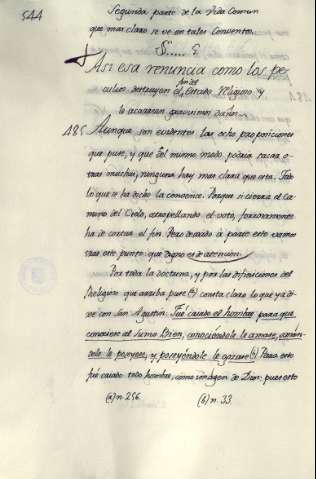 544
Segunda parte de la Vida Comun
que mas claro se ve en tales Conventos.
S..... 8
Asi esa renuncia como los pe
culios destruyen el Estado Religioso y
le acarrean gravisimos daños.
185 Aunque son evidentes las ocho proposiciones
que puse, y que del mismo modo podria sacar o-
tras muchas, ninguna hay mas clara que esta. Todo
lo que se ha dicho la convence. Porque si cierra el Ca-
mino del Cielo, atropellando el voto, forzosamente
ha de cortar el fin. Pero dexado à parte esto vamos
à este punto: que digno es de atencion.
Por toda la doctrina, y por las difiniciones del
Religioso que arriba puse (a) consta claro lo que ya di-
xe con San Agustin. Fue criado el hombre para que
conociese al Sumo Bien, conociendole le amase, aman-
dole le poseyese, y poseyéndole le gozase (b) Para esto
fué criado todo hombre, como imagen de Dios: pues esto
(a) n. 256 (b) n. 33